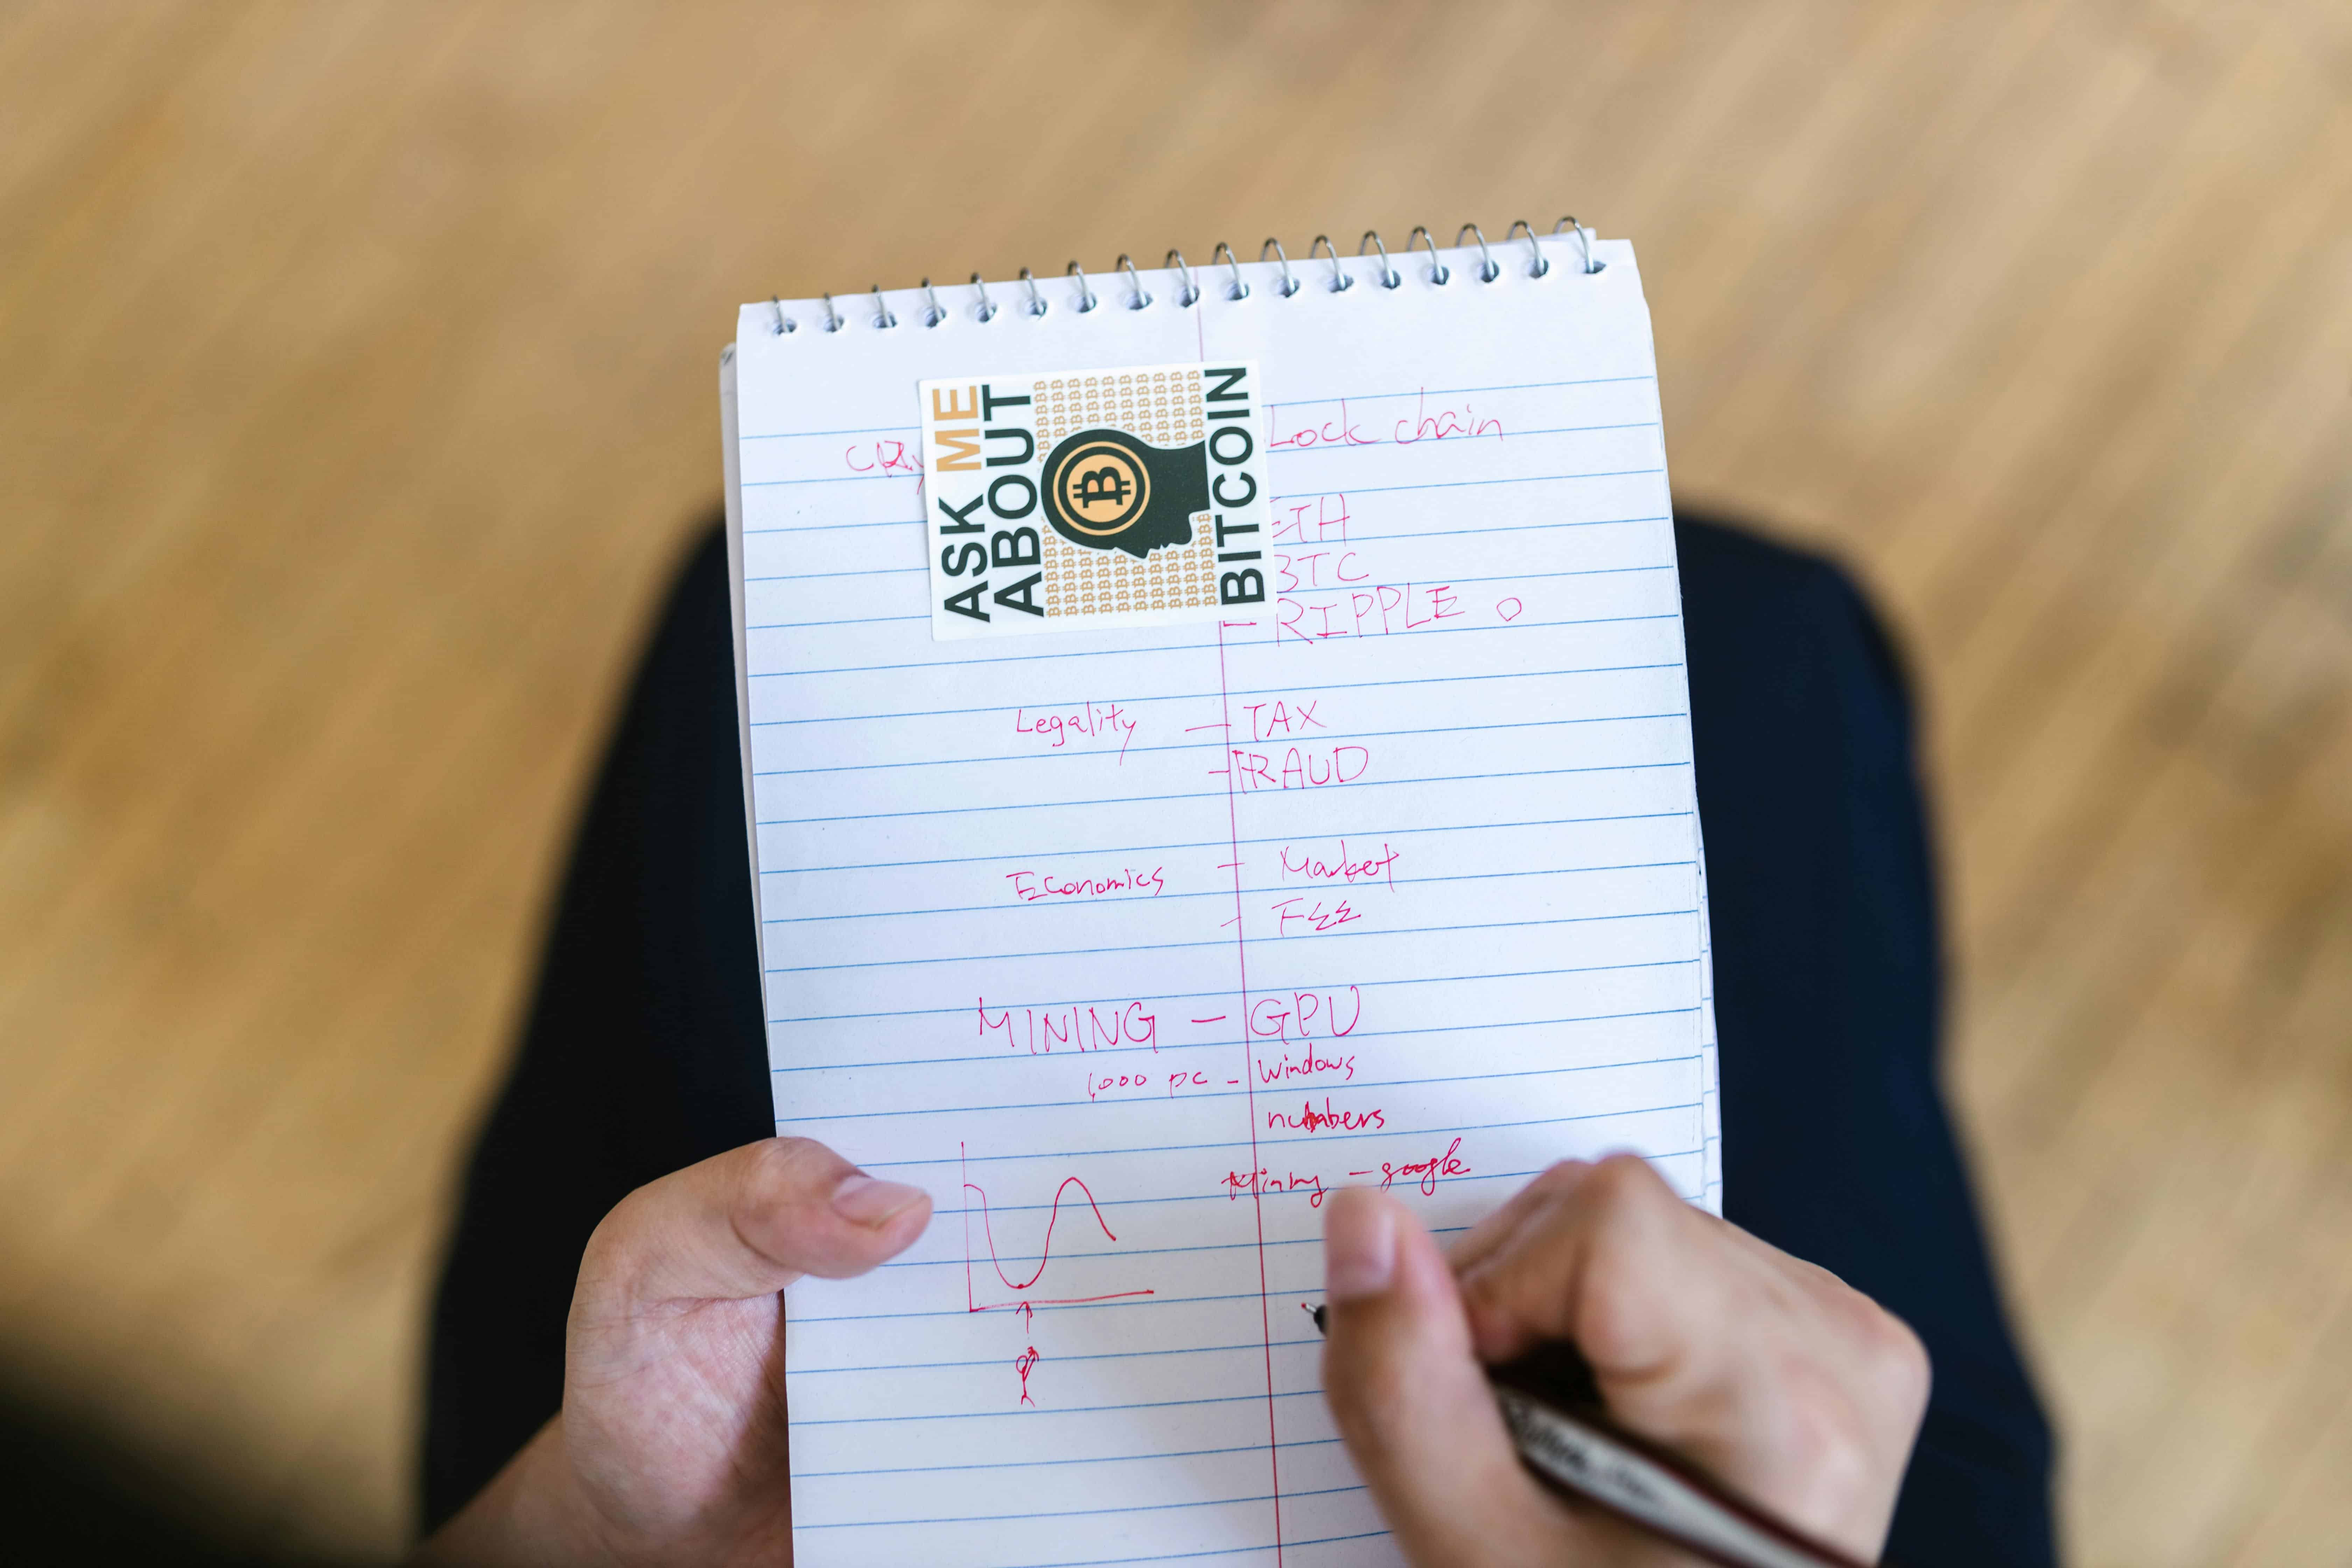 ASK ME
ABOUT
BITCOIN
CRy Lock chain
ETH
BTC
- RIPPLE o
Legality - TAX
- FRAUD
Economics - Market
- FEE
MINING - GPU
1,000 pc - Windows
numbers
Mining - google